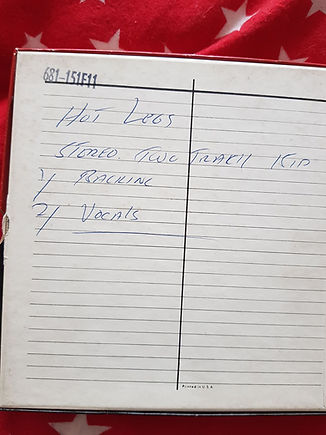 681-151E11
Hot Legs
STEREO. TWO TRACK
1/ BACKING
2/ Vocals
Printed in U.S.A